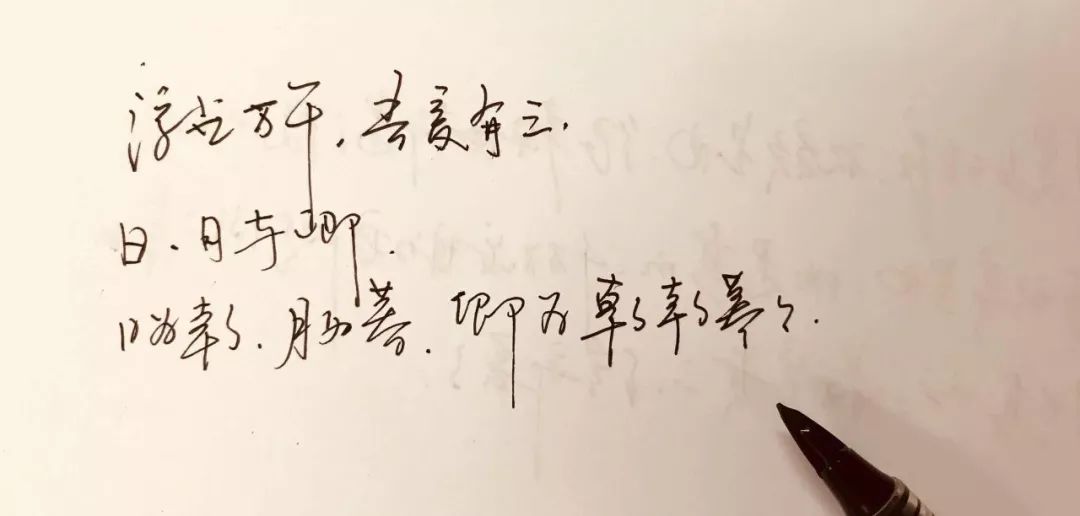 浮世万千,吾爱有三.
日、月与卿.
日为朝,月为暮.卿为朝朝暮暮.